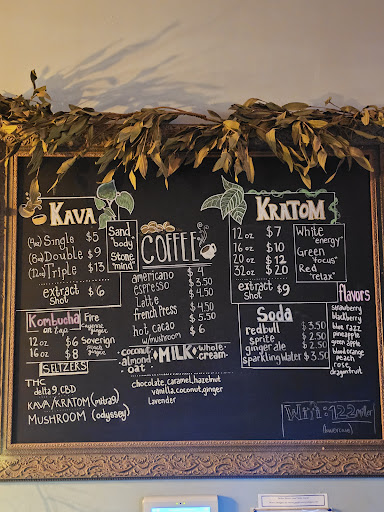 KAVA
(4oz) Single $5
(8oz) Double $9
(12oz) Triple $13
extract shot $6
Sand "body"
Stone "mind"
COFFEE
americano $4
espresso $3.50
$4.50
Latte
french Press $4.50
$5.50
hot cacao $6
w/mushroom
KRATOM
12 oz $7
16 oz $10
20 oz $12
32 oz $20
extract shot $9
White "energy"
Green "focus"
Red "relax"
Kombucha
on tap
12 oz $6
16 oz $8
Fire
Soverign
SELTZERS
THC
delta 9, CBD
KAVA/KRATOM (mitra9)
MUSHROOM (odyssey)
coconut
almond
oat
MILK
whole
cream
chocolate, caramel, hazelnut
vanilla, coconut, ginger
lavender
Soda
redbull $3.50
sprite $2.50
ginger ale $2.50
sparkling water $3.50
flavors
strawberry
blackberry
blue razz
pineapple
green apple
blood orange
peach
rose
dragonfruit
Wifi: 122